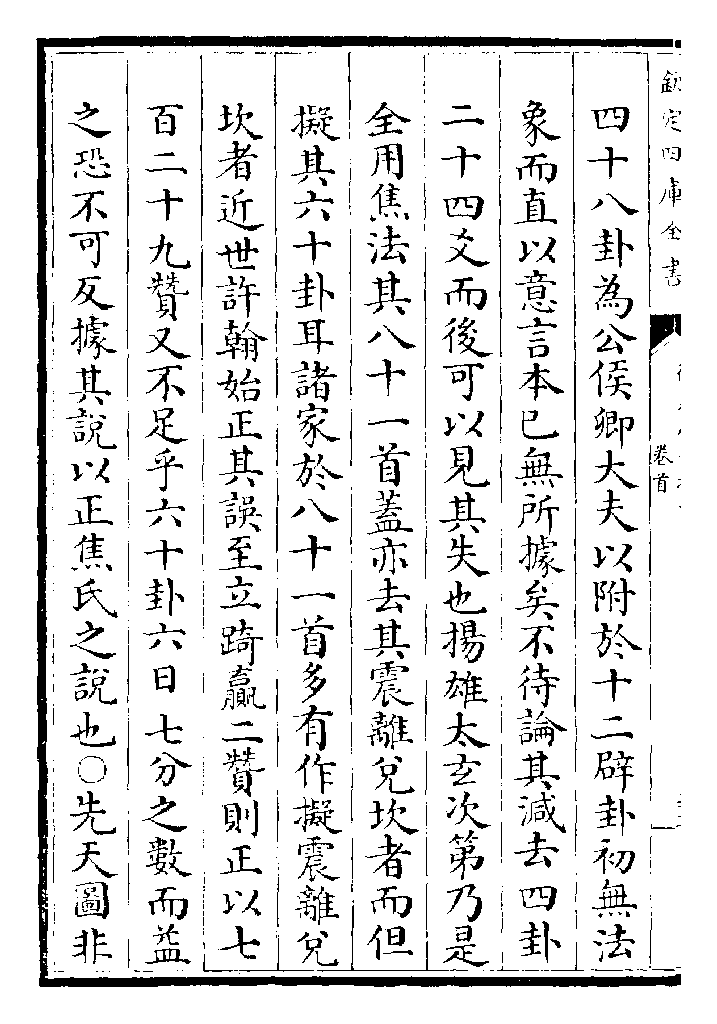 欽定四庫全書
卷首
四十八卦為公侯卿大夫以附於十二辟卦初無法
象而直以意言本已無所據矣不待論其減去四卦
二十四爻而後可以見其失也揚雄太玄次第乃是
全用焦法其八十一首蓋亦去其震離兌坎者而但
擬其六十卦耳諸家於八十一首多有作擬震離兌
坎者近世許翰始正其誤至立踦贏二贊則正以七
百二十九贊又不足乎六十卦六日七分之數而益
之恐不可反據其說以正焦氏之說也○先天圖非